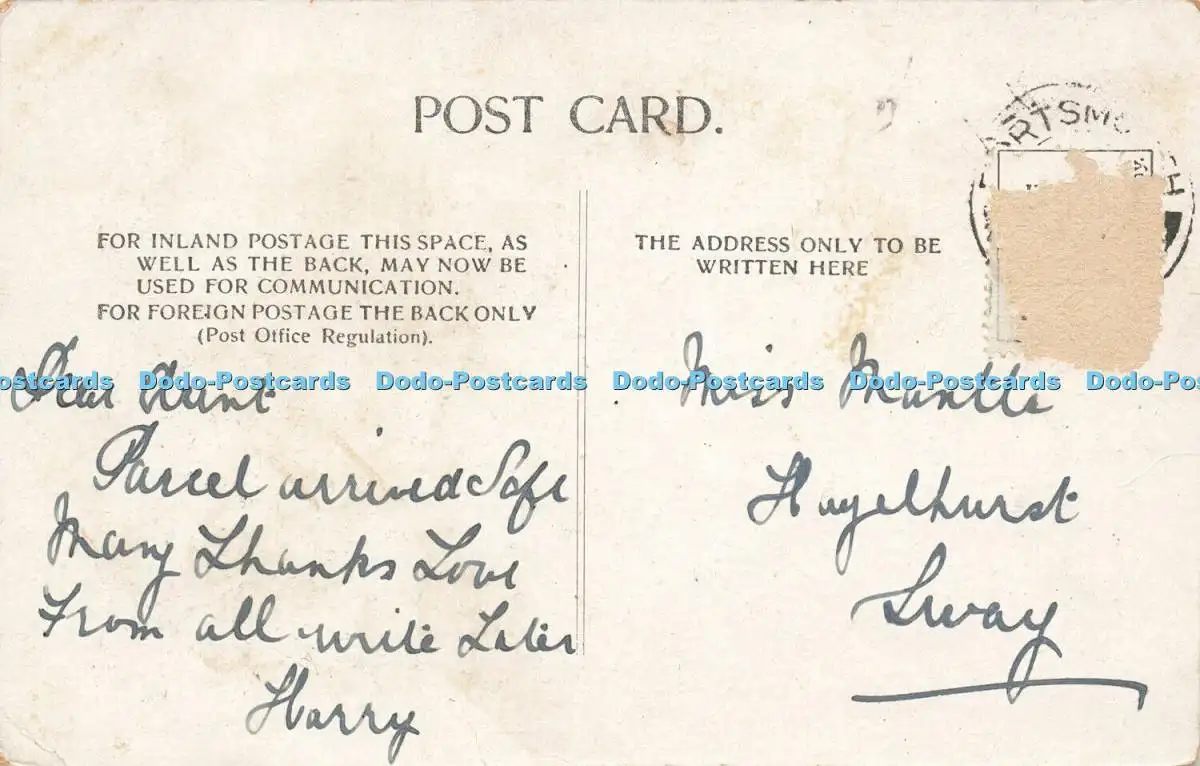 POST CARD.
FOR INLAND POSTAGE THIS SPACE, AS
WELL AS THE BACK, MAY NOW BE
USED FOR COMMUNICATION.
FOR FOREIGN POSTAGE THE BACK ONLY
(Post Office Regulation).
Dear Aunt
Parcel arrived Safe
Many Thanks Love
From all write Later
Harry
THE ADDRESS ONLY TO BE
WRITTEN HERE
Miss Mantle
Hazelhurst
Sway
Dodo-Postcards Dodo-Postcards Dodo-Postcards Dodo-Postcards